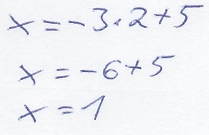 x = -3·2+5
x = -6+5
x = 1